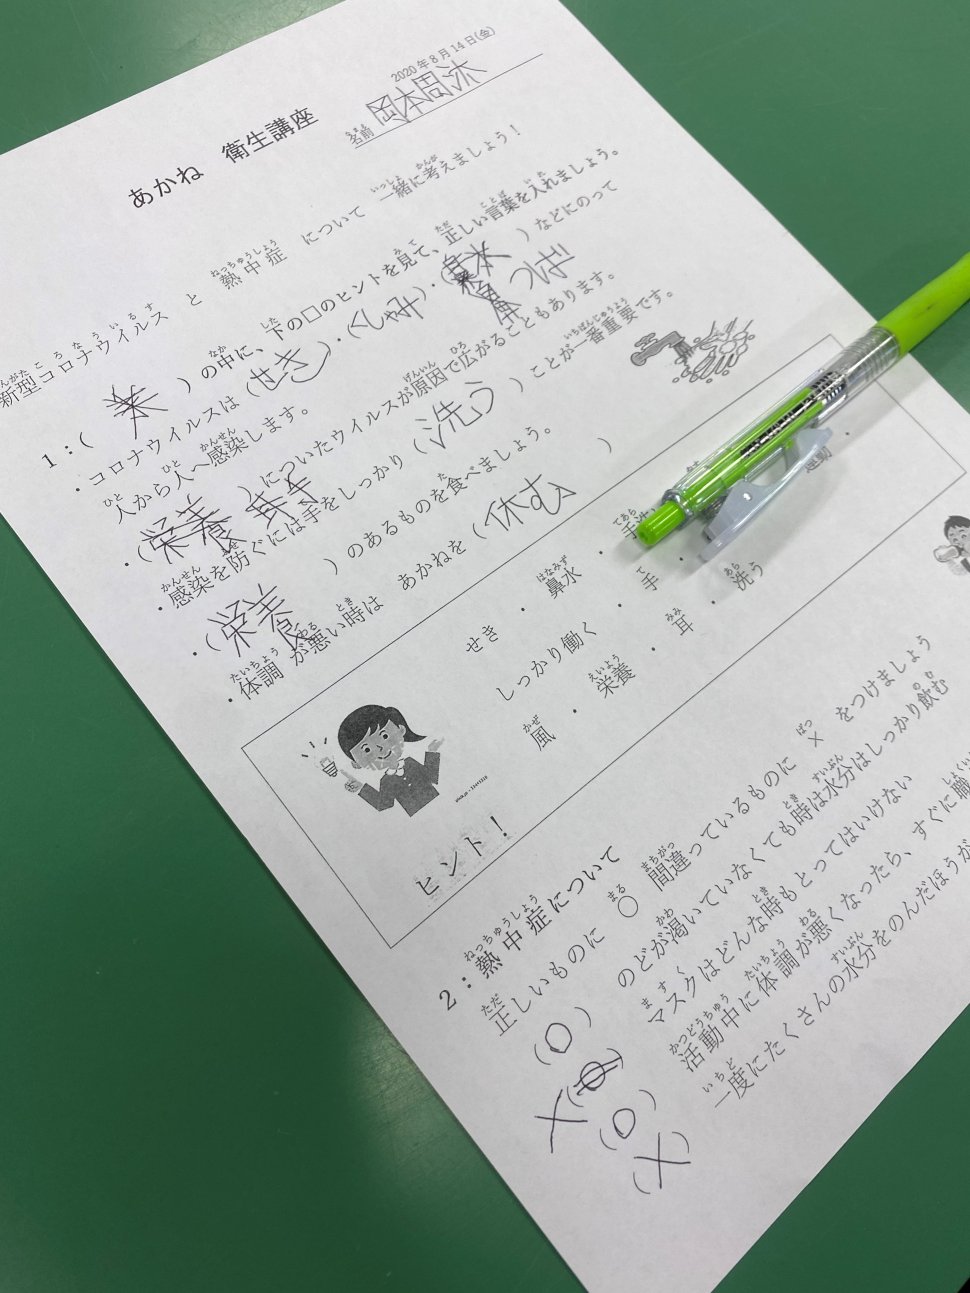 2020年8月14日(金)
あかね 衛生講座
名前 岡本周
新型コロナウイルス と 熱中症 について 一緒に考えましょう！
1：( )の中に、下の口のヒントを見て、正しい言葉を入れましょう。
・コロナウイルスは(せき)・(くしゃみ)・( つば )などにのって
人から人へ感染します。
・(栄養 耳 手)についたウイルスが原因で広がることもあります。
・感染を防ぐには手をしっかり(洗う)ことが一番重要です。
・(栄養)のあるものを食べましょう。
・体調が悪い時は あかねを(休む)
せき ・ 鼻水 ・
しっかり働く ・ 手 ・ 洗う
風 ・ 栄養 ・ 耳 ・
運動
ヒント！
2：熱中症について
正しいものに ○ 間違っているものに × をつけましょう
(○) のどが渇いていなくても時は水分はしっかり飲む
×( ) マスクはどんな時もとってはいけない
(○) 活動中に体調が悪くなったら、すぐに職
(×) 一度にたくさんの水分をのんだほうが